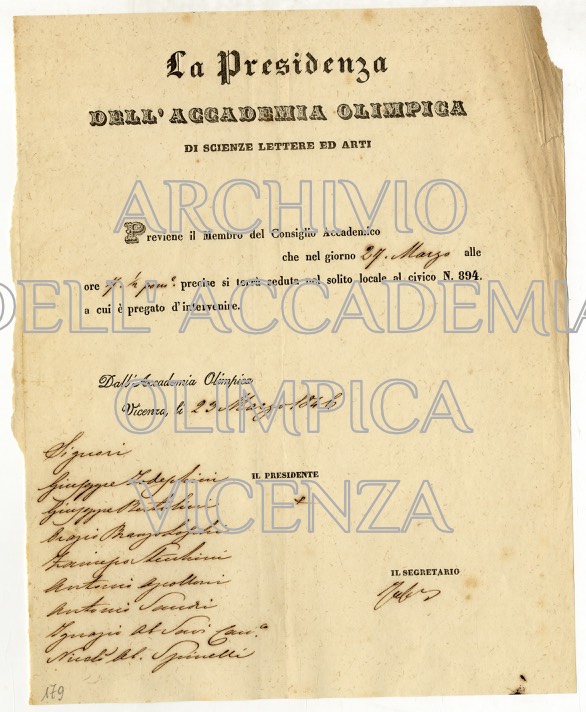 La Presidenza
DELL'ACCADEMIA OLIMPICA
DI SCIENZE LETTERE ED ARTI
ARCHIVIO
Previene il Membro del Consiglio Accademico
che nel giorno 27. Marzo alle
ore 7. ½ pom.e precise si terrà seduta nel solito locale al civico N. 894.
DELL'ACCADEMIA
a cui è pregato d'intervenire.
Dall'Accademia Olimpica
OLIMPICA
Vicenza, li 23 Marzo 1846
Signori
IL PRESIDENTE
Giuseppe
VICENZA
Giuseppe
Orazio
Francesco
IL SEGRETARIO
Antonio Apolloni
Antonio Sandri
Ignazio Ab. Savi Can.o
Nicolò Ab. Spinelli
179